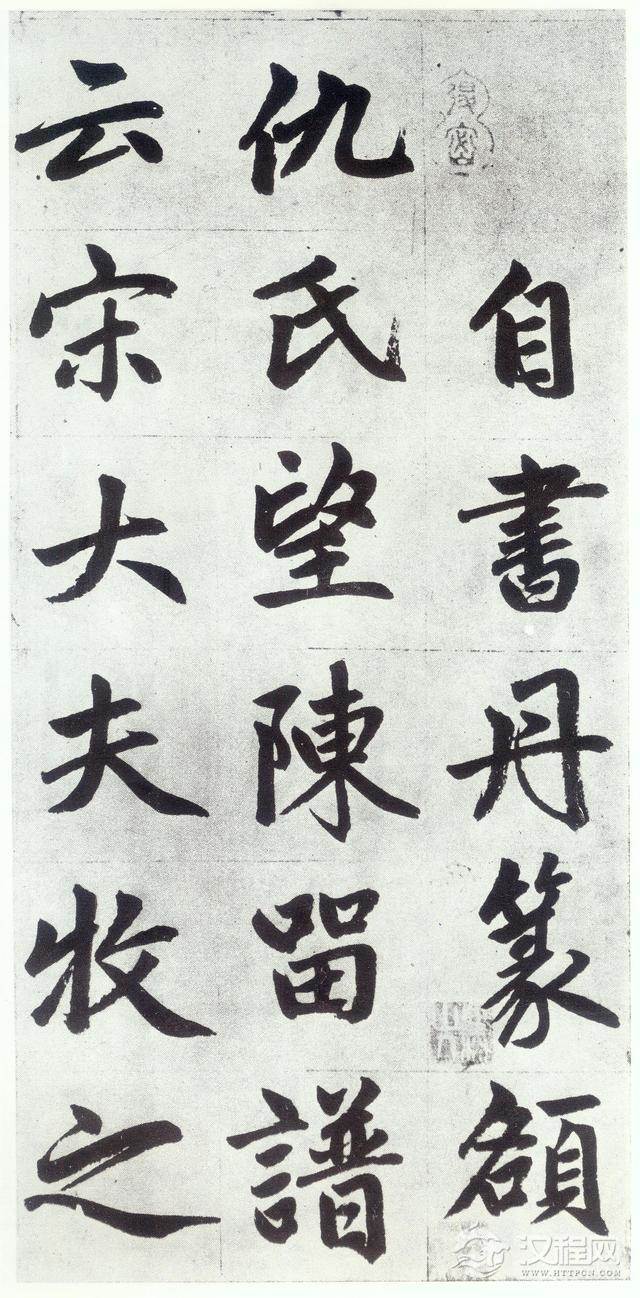 自書丹篆額
仇氏望陳留譜
云宋大夫牧之
汉程网
WWW.HTTPCN.COM